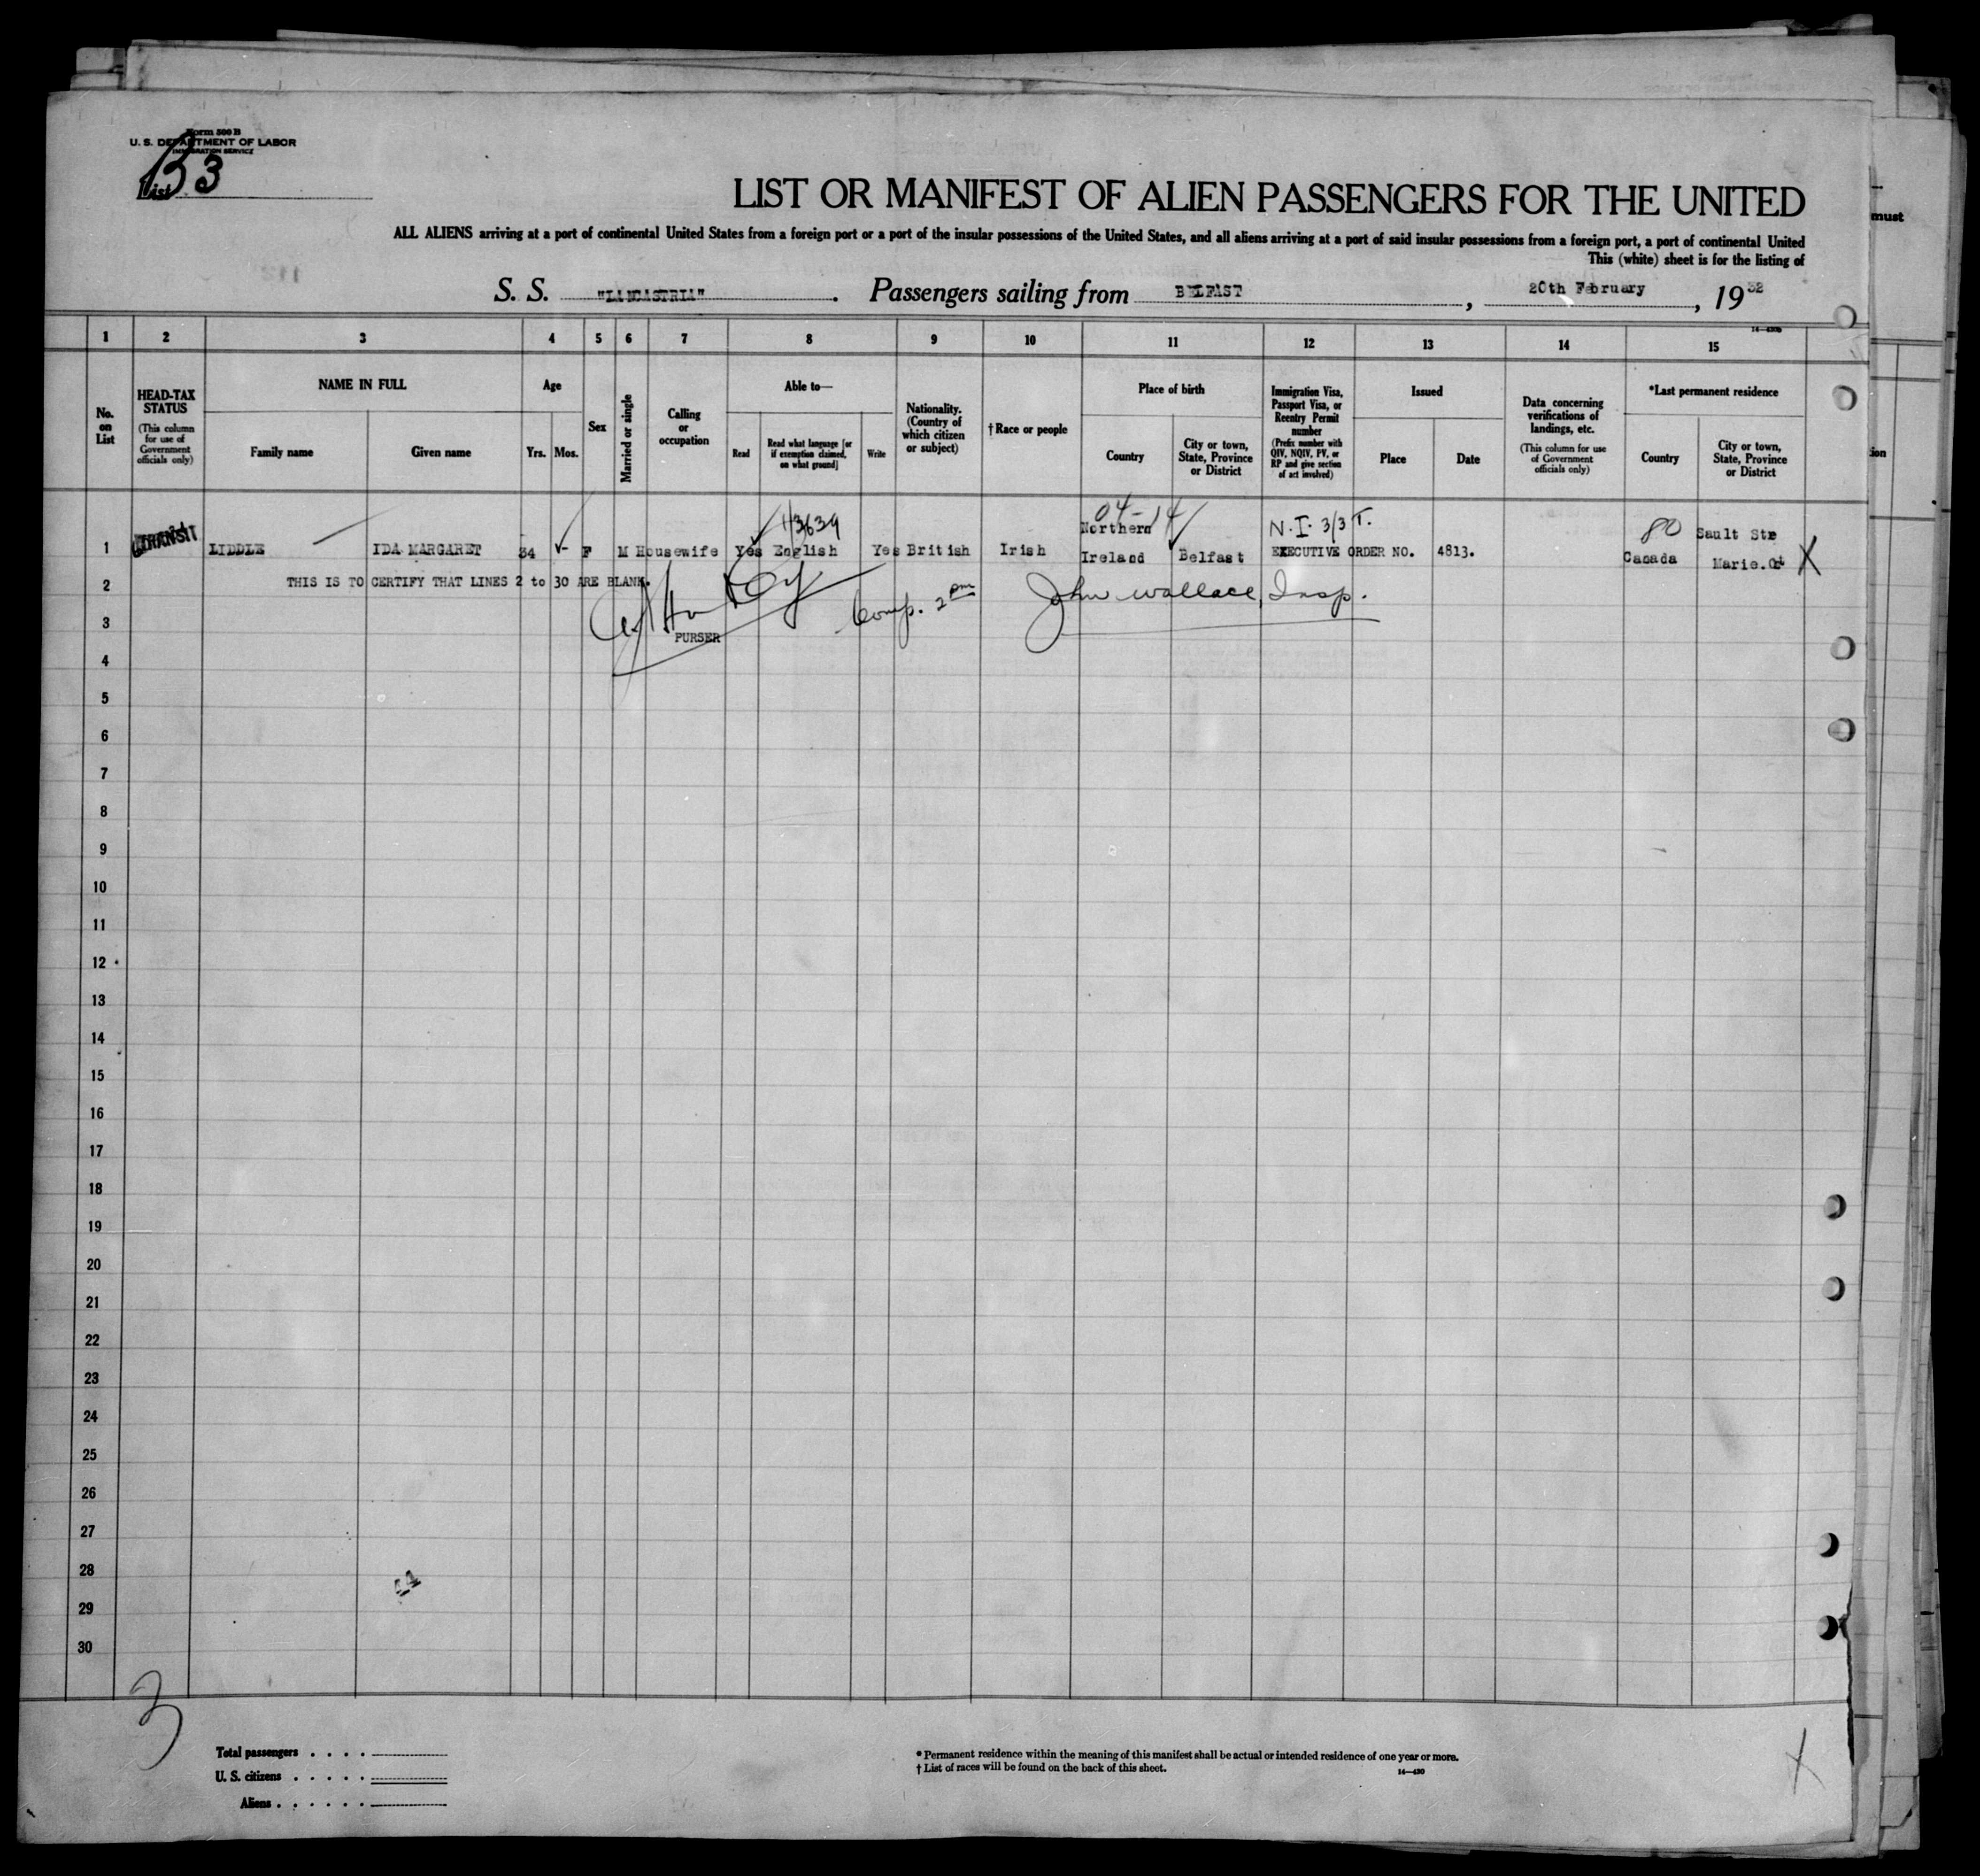 Form 500 B
U. S. DEPARTMENT OF LABOR
IMMIGRATION SERVICE
List B 3
LIST OR MANIFEST OF ALIEN PASSENGERS FOR THE UNITED
ALL ALIENS arriving at a port of continental United States from a foreign port or a port of the insular possessions of the United States, and all aliens arriving at a port of said insular possessions from a foreign port, a port of continental United
This (white) sheet is for the listing of
S. S. "LANCASTRIA". Passengers sailing from BELFAST, 20th February, 1932
1 2 3 4 5 6 7 8 9 10 11 12 13 14 15
No. on List
HEAD-TAX STATUS
(This column for use of Government officials only)
NAME IN FULL
Family name
Given name
Age
Yrs. Mos.
Sex
Married or single
Calling or occupation
Able to—
Read
Read what language [or if exemption claimed, on what ground]
Write
Nationality. (Country of which citizen or subject)
†Race or people
Place of birth
Country
City or town, State, Province or District
Immigration Visa, Passport Visa, or Reentry Permit number
(Prefix number with QIV, NQIV, PV, or RP and give section of act involved)
Issued
Place
Date
Data concerning verifications of landings, etc.
(This column for use of Government officials only)
*Last permanent residence
Country
City or town, State, Province or District
04-14
N.I. 3/3 T.
80
1 TRANSIT LIDDLE IDA MARGARET 34 F M Housewife Yes English Yes British Irish Northern Ireland Belfast EXECUTIVE ORDER NO. 4813. Canada Sault Ste Marie. Ont X
2 THIS IS TO CERTIFY THAT LINES 2 to 30 ARE BLANK.
Comp. 2 pm John Wallace, Insp.
3 PURSER
4
5
6
7
8
9
10
11
12
13
14
15
16
17
18
19
20
21
22
23
24
25
26
27
28
29
30
3
Total passengers
U. S. citizens
Aliens
* Permanent residence within the meaning of this manifest shall be actual or intended residence of one year or more.
† List of races will be found on the back of this sheet.
14—430
must
ion